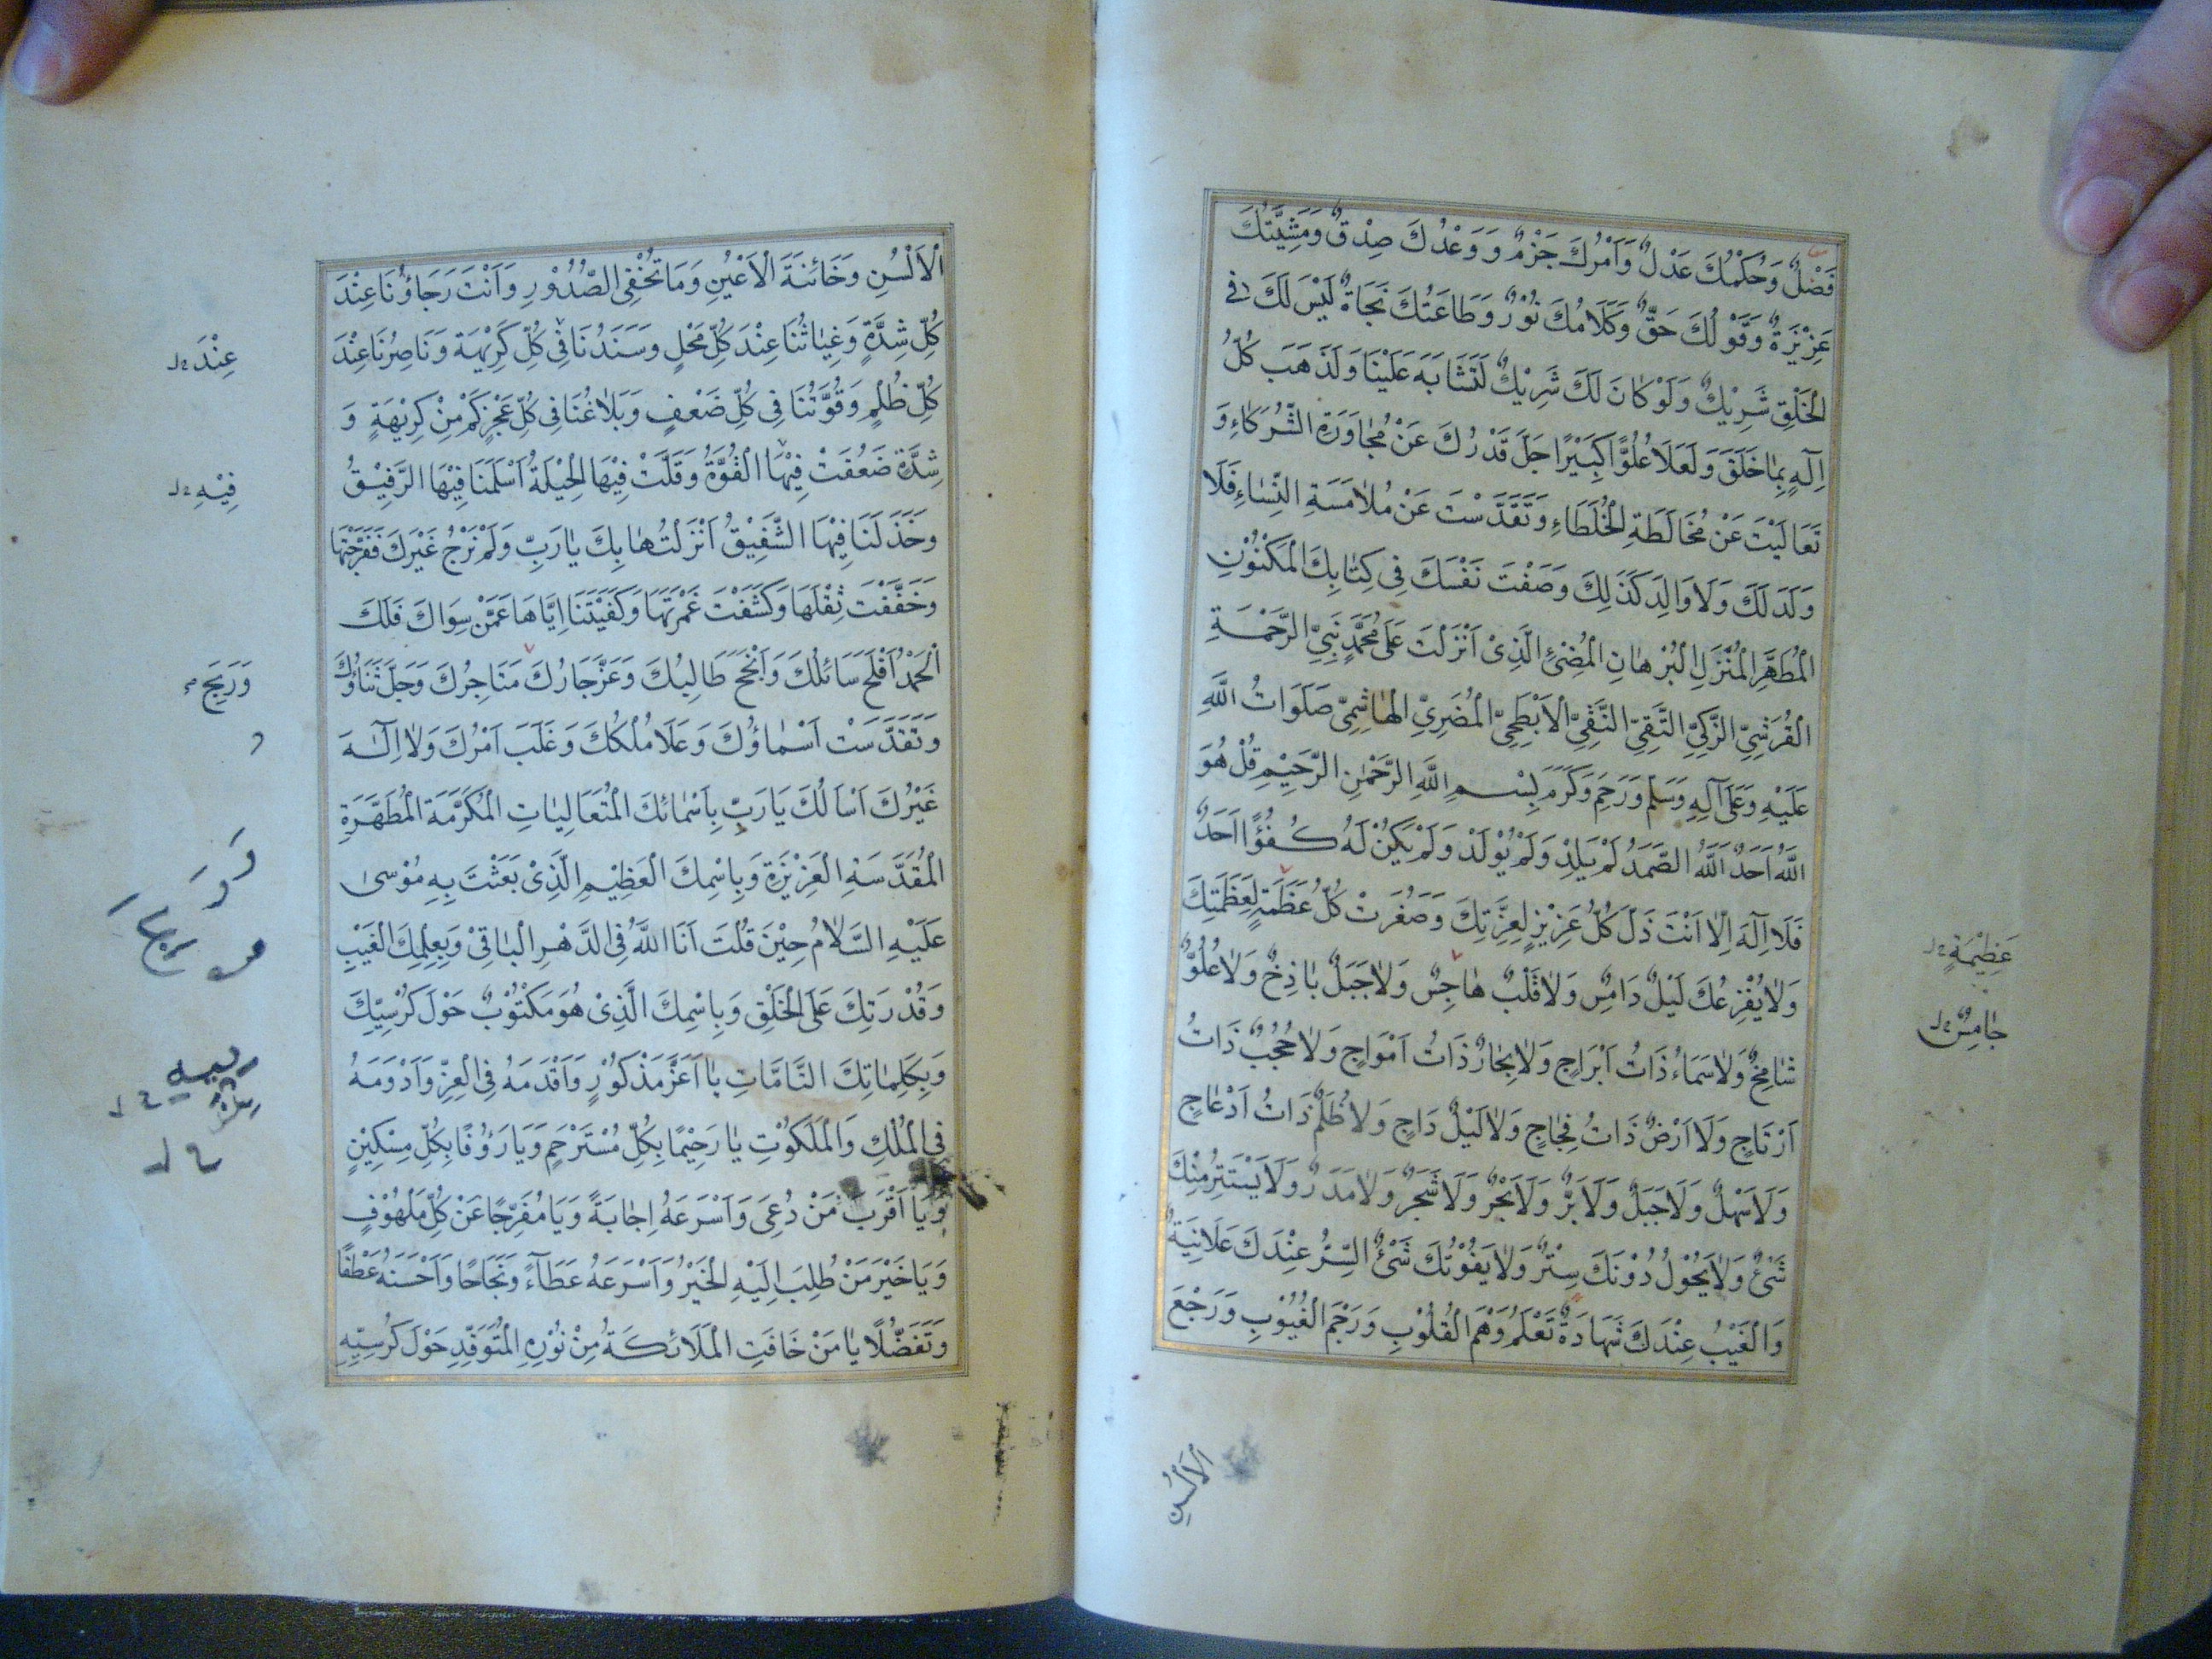 فَضْلٌ وَحُكْمُكَ عَدْلٌ وَاَمْرُكَ جَزْمٌ وَوَعْدُكَ صِدْقٌ وَمَشِيَّتُكَ
عَزِيْزَةٌ وَقَوْلُكَ حَقٌّ وَكَلَامُكَ نُوْرٌ وَطَاعَتُكَ نَجَاةٌ لَيْسَ لَكَ فِي
الْخَلْقِ شَرِيْكٌ وَلَوْ كَانَ لَكَ شَرِيْكٌ لَتَشَابَهَ عَلَيْنَا وَلَذَهَبَ كُلُّ
اِلٰهٍ بِمَا خَلَقَ وَلَعَلَا عُلُوًّا كَبِيْرًا جَلَّ قَدْرُكَ عَنْ مُجَاوَرَةِ الشُّرَكَاءِ وَ
تَعَالَيْتَ عَنْ مُخَالَطَةِ الْخُلَطَاءِ وَتَقَدَّسْتَ عَنْ مُلَامَسَةِ النِّسَاءِ فَلَا
وَلَدَ لَكَ وَلَا وَالِدَ كَذٰلِكَ وَصَفْتَ نَفْسَكَ فِي كِتَابِكَ الْمَكْنُوْنِ
الْمُطَهَّرِ الْمُنْزَلِ الْبُرْهَانِ الْمُضِئِ الَّذِيْ اَنْزَلْتَ عَلَى مُحَمَّدٍ نَبِيِّ الرَّحْمَةِ
الْقُرَشِيِّ الزَّكِيِّ التَّقِيِّ النَّقِيِّ الْاَبْطَحِيِّ الْمُضَرِيِّ الْهَاشِمِيِّ صَلَوَاتُ اللَّهِ
عَلَيْهِ وَعَلَى آلِهِ وَسَلَّمَ وَرَحِمَ وَكَرَّمَ بِسْمِ اللَّهِ الرَّحْمٰنِ الرَّحِيْمِ قُلْ هُوَ
اللَّهُ اَحَدٌ اَللَّهُ الصَّمَدُ لَمْ يَلِدْ وَلَمْ يُوْلَدْ وَلَمْ يَكُنْ لَهُ كُفُؤًا اَحَدٌ
فَلَا اِلٰهَ اِلَّا اَنْتَ ذَلَّ كُلُّ عَزِيْزٍ لِعِزَّتِكَ وَصَغُرَتْ كُلُّ عَظَمَةٍ لِعَظَمَتِكَ
عَظِيْمَةٍ
وَلَا يُفْزِعُكَ لَيْلٌ دَامِسٌ وَلَا قَلْبٌ هَاجِسٌ وَلَا جَبَلٌ بَاذِخٌ وَلَا عُلُوٌّ
شَامِخٌ وَلَا سَمَاءٌ ذَاتُ اَبْرَاجٍ وَلَا بِحَارٌ ذَاتُ اَمْوَاجٍ وَلَا حُجُبٌ ذَاتُ
اَرْتَاجٍ وَلَا اَرْضٌ ذَاتُ فِجَاجٍ وَلَا لَيْلٌ دَاجٍ وَلَا ظُلَمٌ ذَاتُ اَدْعَاجٍ
وَلَا سَهْلٌ وَلَا جَبَلٌ وَلَا بَرٌّ وَلَا بَحْرٌ وَلَا شَجَرٌ وَلَا مَدَرٌ وَلَا يَسْتَتِرُ مِنْكَ
شَئٌ وَلَا يَحُوْلُ دُوْنَكَ سِتْرٌ وَلَا يَفُوْتُكَ شَئٌ السِّرُّ عِنْدَكَ عَلَانِيَةٌ
وَالْغَيْبُ عِنْدَكَ شَهَادَةٌ تَعْلَمُ وَهْمَ الْقُلُوْبِ وَرَجْمَ الْغُيُوْبِ وَرَجْعَ
الْاَلْسُنِ
الْاَلْسُنِ وَخَائِنَةَ الْاَعْيُنِ وَمَا تُخْفِي الصُّدُوْرِ وَاَنْتَ رَجَاؤُنَا عِنْدَ
كُلِّ شِدَّةٍ وَغِيَاثُنَا عِنْدَ كُلِّ مَحْلٍ وَسَنَدُنَا فِي كُلِّ كَرِيْهَةٍ وَنَاصِرُنَا عِنْدَ
عِنْدَ
كُلِّ ظُلْمٍ وَقُوَّتُنَا فِي كُلِّ ضَعْفٍ وَبَلَاغُنَا فِي كُلِّ عَجْزٍ كَمْ مِنْ كَرِيْهَةٍ وَ
شِدَّةٍ ضَعُفَتْ فِيْهَا الْقُوَّةُ وَقَلَّتْ فِيْهَا الْحِيْلَةُ اَسْلَمَنَا فِيْهَا الرَّفِيْقُ
فِيْهِ
وَخَذَلَنَا فِيْهَا الشَّفِيْقُ اَنْزَلْتُهَا بِكَ يَا رَبِّ وَلَمْ نَرْجُ غَيْرَكَ فَفَرَّجْتَهَا
وَخَفَّفْتَ ثِقْلَهَا وَكَشَفْتَ غَمْرَتَهَا وَكَفَيْتَنَا اِيَّاهَا عَمَّنْ سِوَاكَ فَلَكَ
الْحَمْدُ اَفْلَحَ سَائِلُكَ وَاَنْجَحَ طَالِبُكَ وَعَزَّ جَارُكَ مَتَاجِرُكَ وَجَلَّ ثَنَاؤُكَ
وَرَبِحَ
وَتَقَدَّسَتْ اَسْمَاؤُكَ وَعَلَا مُلْكُكَ وَغَلَبَ اَمْرُكَ وَلَا اِلٰهَ
غَيْرُكَ اَسْاَلُكَ يَا رَبِّ بِاَسْمَائِكَ الْمُتَعَالِيَاتِ الْمُكَرَّمَةِ الْمُطَهَّرَةِ
الْمُقَدَّسَةِ الْعَزِيْزَةِ وَبِاسْمِكَ الْعَظِيْمِ الَّذِيْ بَعَثْتَ بِهِ مُوْسٰى
عَلَيْهِ السَّلَامُ حِيْنَ قُلْتَ اَنَا اللَّهُ فِي الدَّهْرِ الْبَاقِيْ وَبِعِلْمِكَ الْغَيْبِ
وَقُدْرَتِكَ عَلَى الْخَلْقِ وَبِاسْمِكَ الَّذِيْ هُوَ مَكْتُوْبٌ حَوْلَ كُرْسِيِّكَ
وَبِكَلِمَاتِكَ التَّامَّاتِ يَا اَعَزَّ مَذْكُوْرٍ وَاَقْدَمَهُ فِي الْعِزِّ وَاَدْوَمَهُ
فِي الْمُلْكِ وَالْمَلَكُوْتِ يَا رَحِيْمًا بِكُلِّ مُسْتَرْحِمٍ وَيَا رَؤُفًا بِكُلِّ مِسْكِيْنٍ
وَيَا اَقْرَبَ مَنْ دُعِيَ وَاَسْرَعَهُ اِجَابَةً وَيَا مُفَرِّجًا عَنْ كُلِّ مَلْهُوْفٍ
وَيَا خَيْرَ مَنْ طُلِبَ اِلَيْهِ الْخَيْرُ وَاَسْرَعَهُ عَطَاءً وَنَجَاحًا وَاَحْسَنَهُ عَطْفًا
وَتَفَضُّلًا يَا مَنْ خَافَتِ الْمَلَائِكَةُ مِنْ نُوْرِهِ الْمُتَوَقِّدِ حَوْلَ كُرْسِيِّهِ